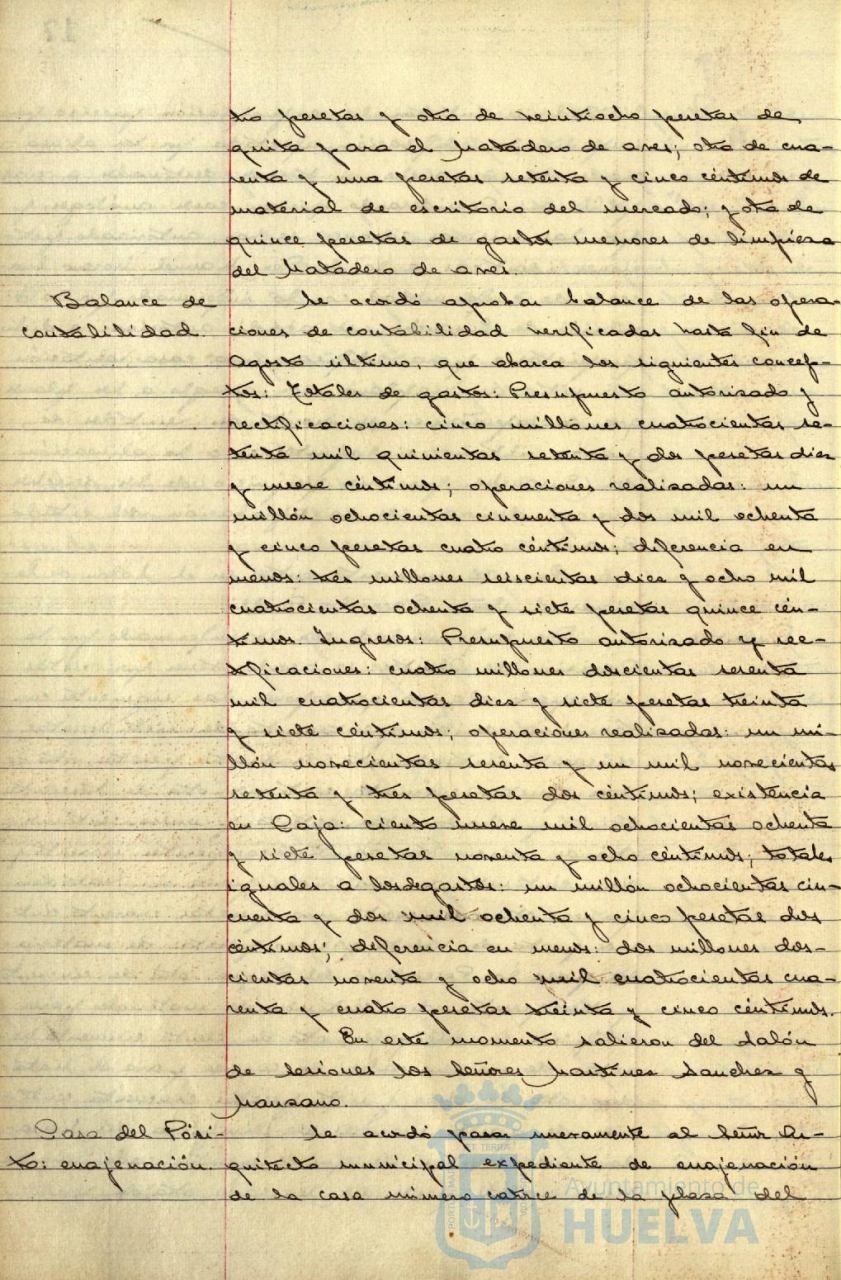 tro pesetas y otra de veintiocho pesetas de
guita para el Matadero de aves; otra de cua-
renta y una pesetas setenta y cinco céntimos de
material de escritorio del mercado; y otra de
quince pesetas de gastos menores de limpieza
del Matadero de aves.
Balance de
contabilidad.
Se acordó aprobar balance de las opera-
ciones de contabilidad verificadas hasta fin de
Agosto último, que abarca los siguientes concep-
tos: Totales de gastos: Presupuesto autorizado y
rectificaciones: cinco millones cuatrocientas se-
tenta mil quinientas setenta y dos pesetas diez
y nueve céntimos; operaciones realizadas: un
millón ochocientas cincuenta y dos mil ochenta
y cinco pesetas cuatro céntimos; diferencia en
menos: tres millones seiscientas diez y ocho mil
cuatrocientas ochenta y siete pesetas quince cén-
timos. Ingresos: Presupuesto autorizado y rec-
tificaciones: cuatro millones doscientas sesenta
mil cuatrocientas diez y siete pesetas treinta
y siete céntimos; operaciones realizadas: un mi-
llón novecientas sesenta y un mil novecientas
setenta y tres pesetas dos céntimos; existencia
en Caja: ciento nueve mil ochocientas ochenta
y siete pesetas noventa y ocho céntimos; totales
iguales a los de gastos: un millón ochocientas cin-
cuenta y dos mil ochenta y cinco pesetas dos
céntimos; diferencia en menos: dos millones dos-
cientas noventa y ocho mil cuatrocientas cua-
renta y cuatro pesetas treinta y cinco céntimos.
En este momento salieron del Salón
de Sesiones los Señores Martinez Sanchez y
Manzano.
Casa del Pósi-
to: enajenación.
Se acordó pasar nuevamente al Señor Ar-
quitecto municipal expediente de enajenación
de la casa número catorce de la plaza del
Ayuntamiento de
HUELVA